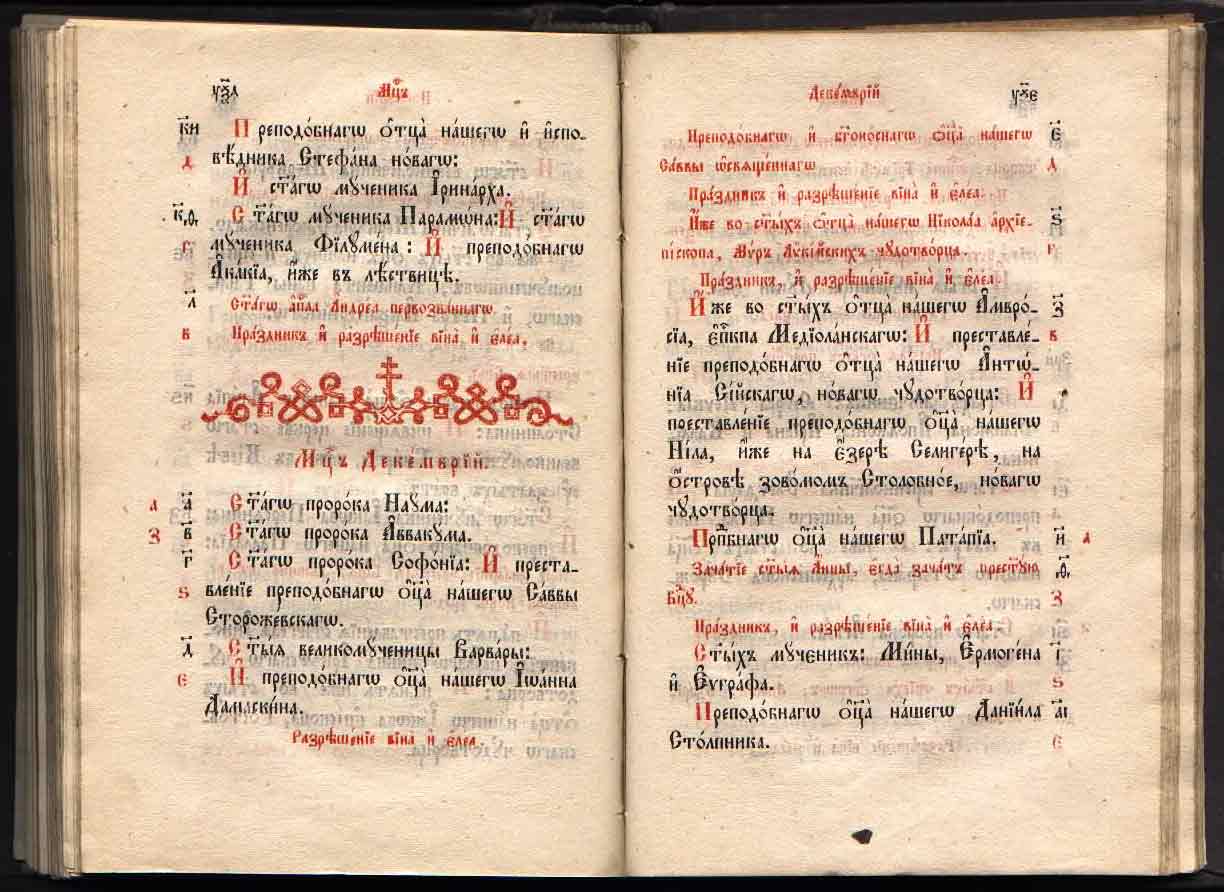 Мцъ
к҃и Преподо́бнагѡ ѻ҆тца̀ на́шегѡ и҆ и҆спо-
д вѣ́дника Стефа́на но́вагѡ:
И҆ ст҃а́гѡ мꙋ́ченика І҆рина́рха.
к҃ѳ Ст҃а́гѡ мꙋ́ченика Парамѡ́на: И҆ ст҃а́гѡ
г мꙋ́ченика Фїлꙋме́на: И҆ преподо́бнагѡ
А҆ка́кїа, и҆́же въ лѣ́ствицѣ.
л҃ Ст҃а́гѡ а҆пⷭ҇ла Андре́а первозва́ннагѡ
в Пра́здникъ и҆ разрѣше́нїе вїна̀ и҆ є҆ле́а.
Мцъ Деке́мврїй.
а а҃ Ст҃а́гѡ проро́ка Наꙋ́ма:
з в҃ Ст҃а́гѡ проро́ка А҆ввакꙋ́ма.
г҃ Ст҃а́гѡ проро́ка Софо́нїа: И҆ преста-
ѕ вле́нїе преподо́бнагѡ ѻ҆ц҃а̀ на́шегѡ Са́ввы
Стороже́вскагѡ.
д҃ Ст҃ы́я великомꙋ́ченицы Варва́ры:
є И҆ преподо́бнагѡ ѻ҆ц҃а̀ на́шегѡ І҆ѡа́нна
Дамаски́на.
Разрѣше́нїе вїна̀ и҆ є҆ле́а.
Деке́мврїй
Преподо́бнагѡ и҆ бг҃оно́снагѡ ѻ҆ц҃а̀ на́шегѡ є҃
Са́ввы ѡ҆свѧще́ннагѡ д
Пра́здникъ и҆ разрѣше́нїе вїна̀ и҆ є҆ле́а.
И҆́же во ст҃ы́хъ ѻ҆тца̀ на́шегѡ Нїко́лаа а҆рхїе- ѕ҃
пі́скопа, Мѵ́ръ Лѷкі́йскихъ чꙋдотво́рца. г
Пра́здникъ, и҆ разрѣше́нїе вїна̀ и҆ є҆ле́а.
И҆́же во ст҃ы́хъ ѻ҆тца̀ на́шегѡ А҆мвро́- з҃
сїа, є҆пⷭ҇кпа Медїола́нскагѡ: И҆ преставле́- в
нїе преподо́бнагѡ ѻ҆тца̀ на́шегѡ А҆нтѡ́-
нїа Сі́йскагѡ, но́вагѡ чꙋдотво́рца: И҆
преставле́нїе преподо́бнагѡ ѻ҆ц҃а̀ на́шегѡ
Ні́ла, и҆́же на є҆́зерѣ Селигерѣ, на
ѻ҆́стровѣ зово́момъ Столобно́е, но́вагѡ
чꙋдотво́рца.
Прпⷣбнагѡ ѻ҆ц҃а̀ на́шегѡ Пата́пїа. и҃ а
Зача́тїе ст҃ы́я А҆́нны, є҆гда̀ зача́тъ прест҃ꙋ́ю ѳ҃
бц҃ꙋ. з
Пра́здникъ, и҆ разрѣше́нїе вїна̀ и҆ є҆ле́а
Ст҃ы́хъ мꙋ́ченикъ: Ми́ны, Є҆рмоге́на і҃
и҆ Є҆ѵгра́фа. ѕ
Преподо́бнагѡ ѻ҆ц҃а̀ на́шегѡ Данїи́ла а҃і
Сто́лпника. є